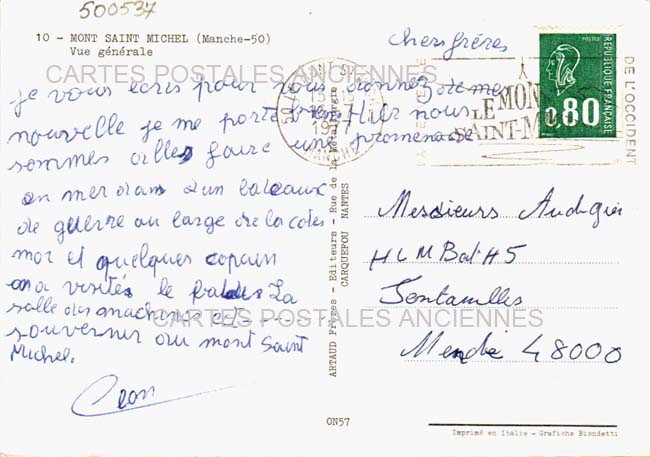 500537
10 - MONT SAINT MICHEL (Manche-50)
Vue générale
CARTES POSTALES ANCIENNES
Chers frères
je vous écris pour vous donnez de mes
nouvelle je me porte bien Hier nous
sommes alles faire une promenade
en mer dans un bateaux
de guerre au large de la cotes
moi et quelques copain
on a visités le La
salle des machines et
souvenir du mont Saint
Michel.
ARTAUD Frères - Editeurs - Rue de la Métallurgie
CARQUEFOU NANTES
ON57
1977
MANCHE
LE MONT
SAINT-M
DE L'OCCIDENT
POSTES
RÉPUBLIQUE FRANÇAISE
0,80
Messieurs
HLM Bat H5
Mende 48000
CARTES POSTALES ANCIENNES
Imprimé en Italie - Grafiche Biondetti